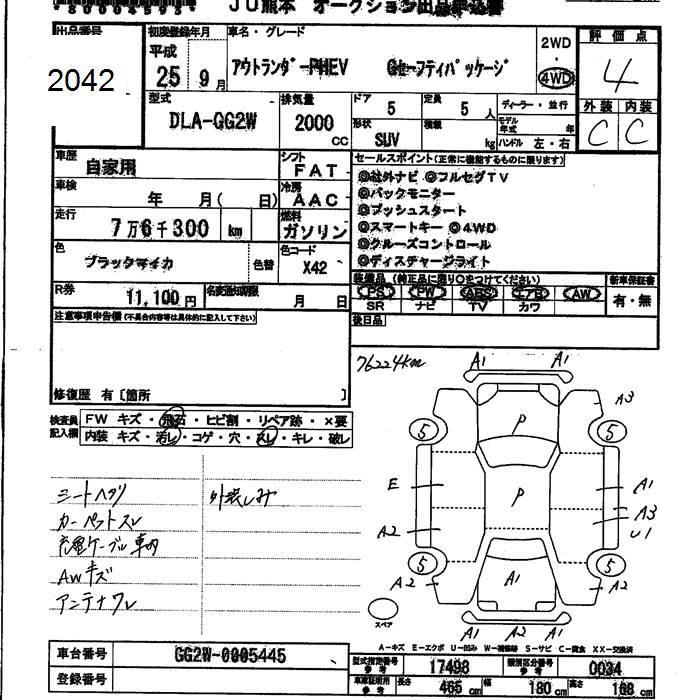 JU熊本 オークション出品申込書
出品番号
2042
初度登録年月
平成
25 9月
車名・グレード
アウトランダーPHEV Gセーフティパッケージ
2WD
4WD
評価点
4
外装 内装
C C
型式
DLA-GG2W
排気量
2000
CC
ドア
5
定員
5 人
ディーラー・並行
形状
SUV
積載
kg
モデル年式 年
ハンドル 左・右
車歴
自家用
シフト
FAT
車検
年 月( 日)
冷房
AAC
走行
7万6千300 km
燃料
ガソリン
色
ブラックマイカ
色替
色コード
X42
R券
11,100円
名変通知期限
月 日
セールスポイント(正常に機能するものに限ります)
◎社外ナビ ◎フルセグTV
◎バックモニター
◎プッシュスタート
◎スマートキー ◎4WD
◎クルーズコントロール
◎ディスチャージライト
装備品 (純正品に限り○をつけてください)
新車保証書
PS PW ABS エアB AW
SR ナビ TV カワ
有・無
後日品
注意事項申告欄(不具合内容等は具体的に記入して下さい)
修復歴 有〔箇所 〕
76224km
検査員記入欄
FW キズ・飛石・ヒビ割・リペア跡・×要
内装 キズ・汚レ・コゲ・穴・スレ・キレ・破レ
シートヘタリ
カーペットスレ
充電ケーブル車内
AWキズ
アンテナワレ
外装しみ
A1 A1
A3
P
5 5
E
P
A1
A3
U1
A2
5 5
A2
A1
A2
スペア
A1 A2 A1
A-キズ E-エクボ U-凹み W-補修跡 S-サビ C-腐食 XX-交換済
車台番号
GG2W-0005445
登録番号
型式指定番号 参考
17498
類別区分番号 参考
0034
車庫証明用 参考
長さ 465 cm
幅 180 cm
高さ 168 cm